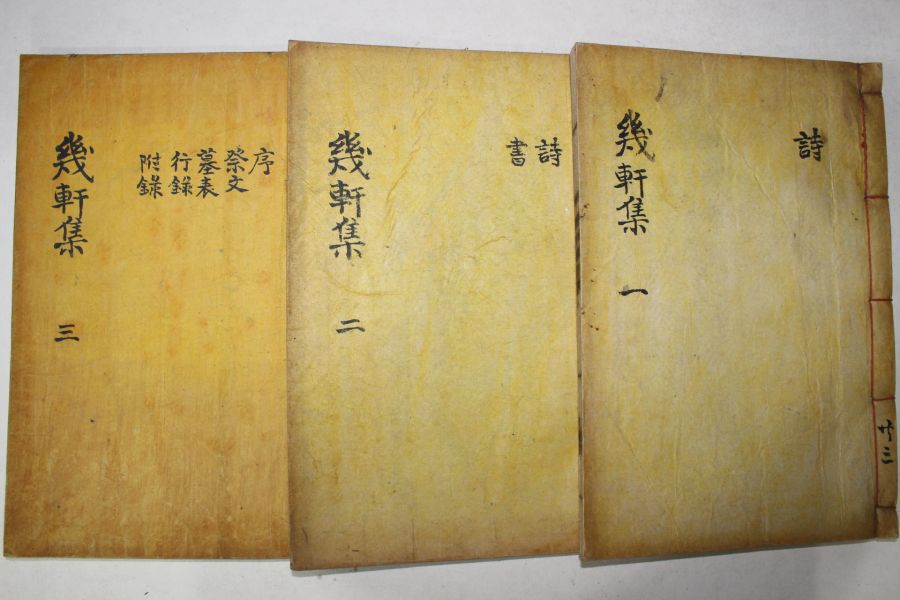 幾軒集 一
詩
共三
幾軒集 二
詩
書
幾軒集 三
序
祭文
墓表
行錄
附錄